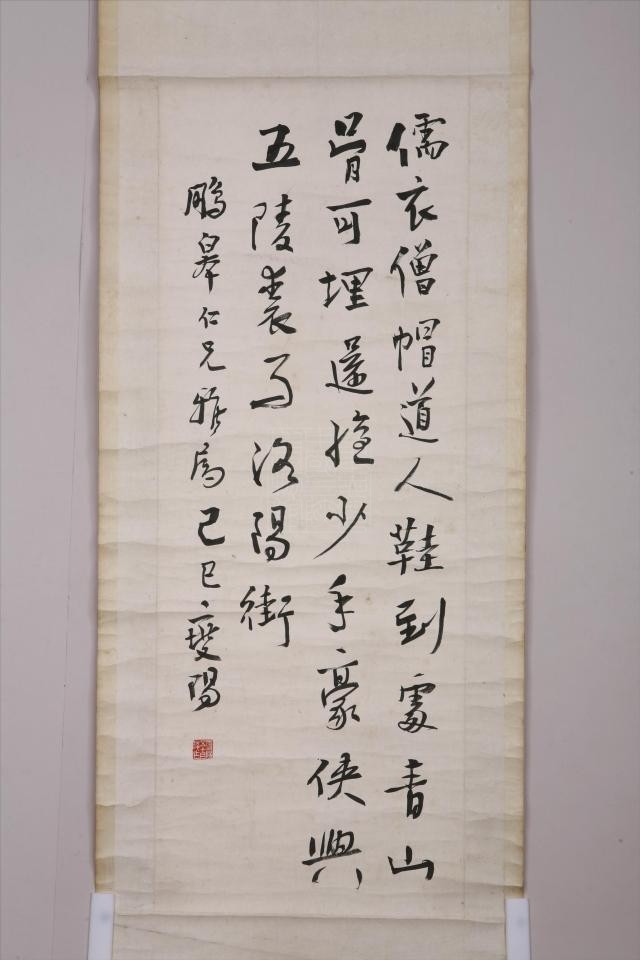 儒衣僧帽道人鞋到處青山
骨可埋還憶少年豪俠興
五陵裘馬洛陽街
鵬皋仁兄雅屬己巳陽